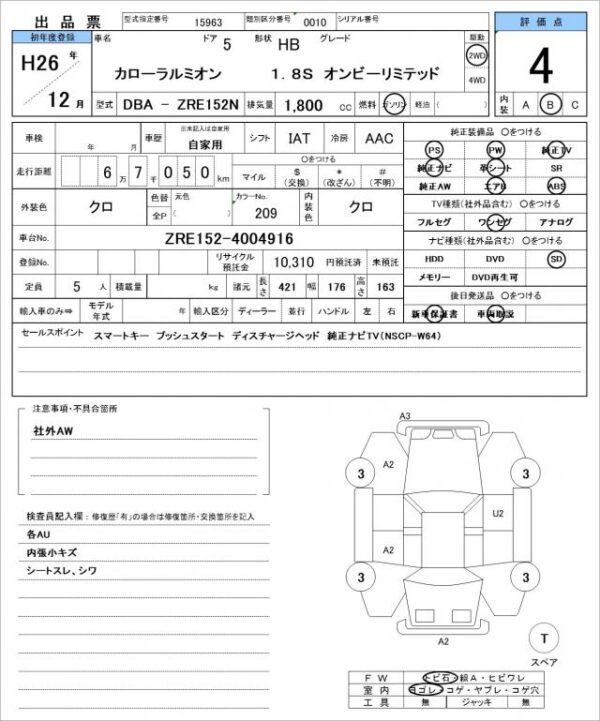 出品票 型式指定番号 15963 類別区分番号 0010 シリアル番号 評価点
初年度登録 車名 ドア 5 形状 HB グレード 駆動
H26 年 12 月 カローラルミオン 1.8S オンビーリミテッド 2WD 4WD 4
型式 DBA - ZRE152N 排気量 1,800 cc 燃料 ガソリン 軽油 ( ) 内装 A B C
車検 年 月 車歴 出来記入は自家用 自家用 シフト IAT 冷房 AAC 純正装備品 ○をつける
走行距離 6 万 7 千 0 5 0 km ○をつける マイル $ (交換) * (改ざん) # (不明)
PS PW 純正TV
純正ナビ 革シート SR
純正AW エアB ABS
外装色 クロ 色替 全P 元色 ( ) カラーNo. 209 内装色 クロ
TV種類(社外品含む) ○をつける
フルセグ ワンセグ アナログ
車台No. ZRE152-4004916
ナビ種類(社外品含む) ○をつける
登録No. リサイクル預託金 10,310 円預託済 未預託
HDD DVD SD
定員 5 人 積載量 kg 諸元 長さ 421 幅 176 高さ 163
メモリー DVD再生可
後日発送品 ○をつける
輸入車のみ⇒ モデル年式 年 輸入区分 ディーラー 並行 ハンドル 左 右
新車保証書 車両取説
セールスポイント スマートキー プッシュスタート ディスチャージヘッド 純正ナビTV(NSCP-W64)
注意事項・不具合箇所
社外AW
検査員記入欄：修復歴「有」の場合は修復箇所・交換箇所を記入
各AU
内張小キズ
シートスレ、シワ
A3
A2
3 3
U2
A2
3 3
A2
T
スペア
FW トビ石・線A・ヒビワレ
室内 ヨゴレ・コゲ・ヤブレ・コゲ穴
工具 無 ジャッキ 無